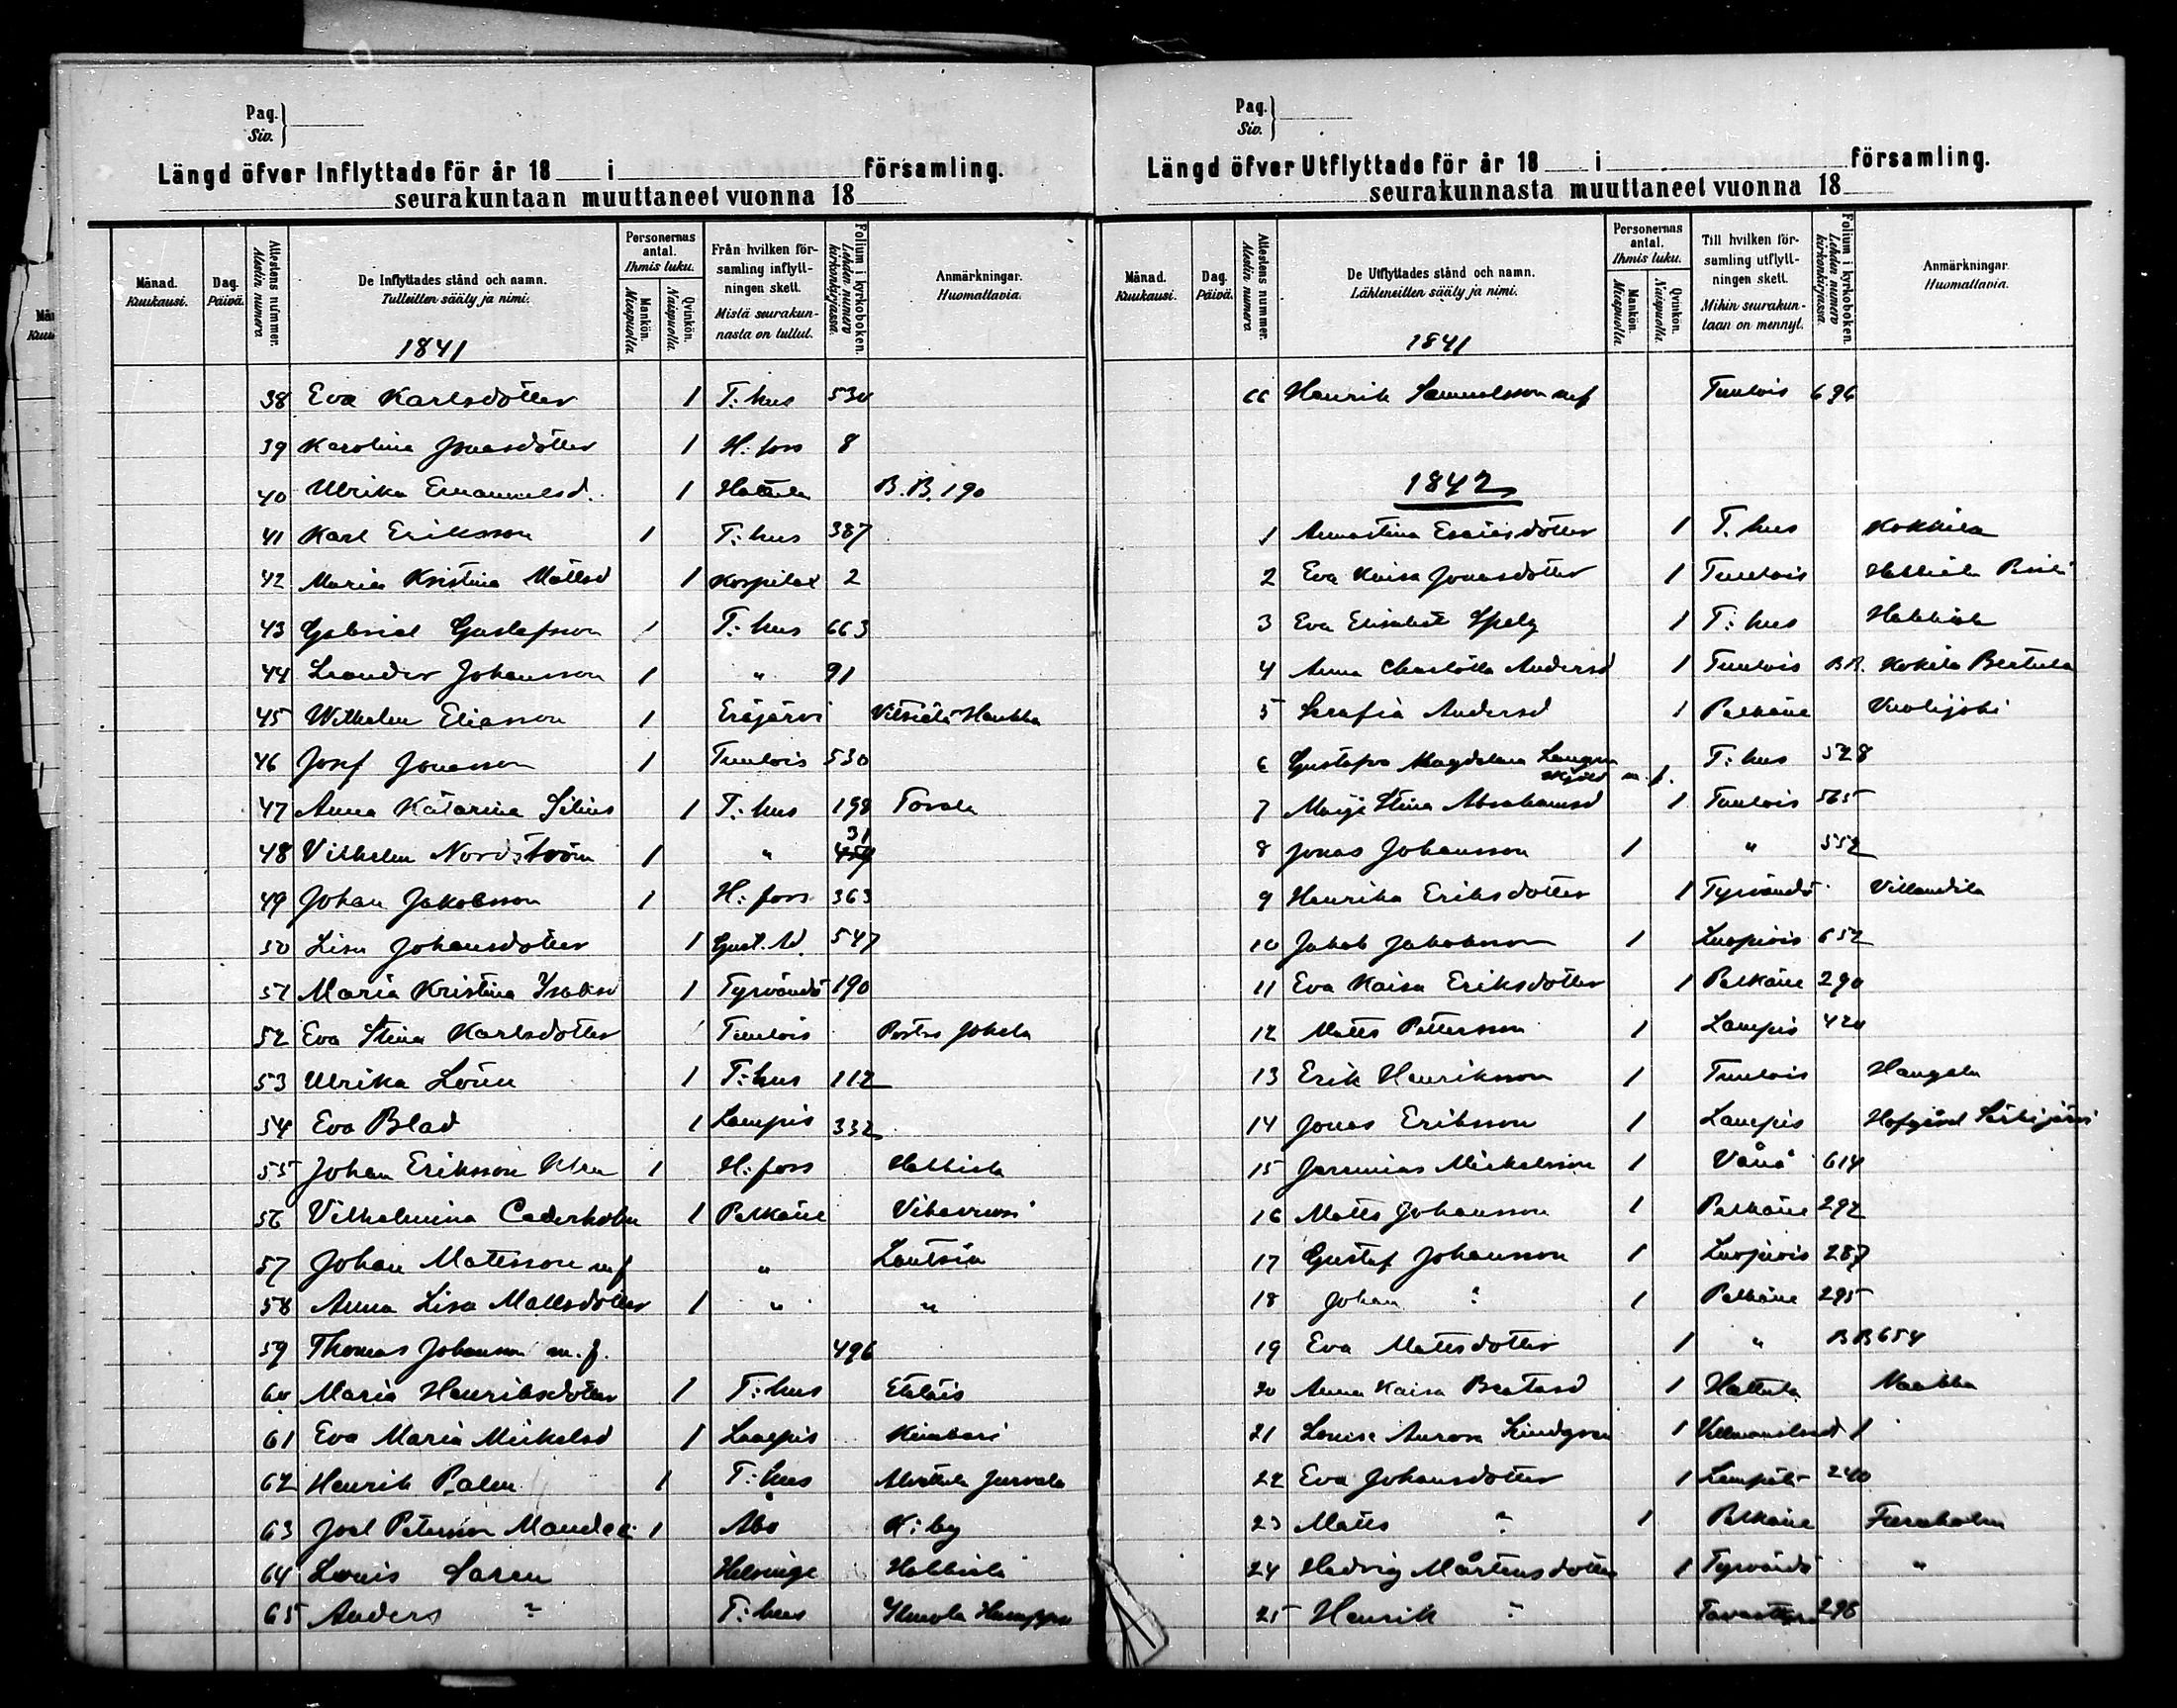 Pag.
Siv.
Längd öfver Inflyttade för år 18 i församling.
seurakuntaan muuttaneet vuonna 18
Månad. Kuukausi.
Dag. Päivä.
Attestens nummer. Atestin numero
De Inflyttades stånd och namn.
Tulleitten sääty ja nimi.
1841
Personernas antal. Ihmis luku.
Mankön. Miespuolla.
Qvinkön. Naispuolla.
Från hvilken församling inflyttningen skett.
Mistä seurakunnasta on tullut.
Folium i kyrkoboken. Lehden numero kirkonkirjassa.
Anmärkningar. Huomattavia.
38 Eva Karlsdotter 1 T:hus 530
39 Karolina Jonasdotter 1 H:fors 8
40 Ulrika Emanuelsd. 1 Hattula B.B. 190
41 Karl Eriksson 1 T:hus 387
42 Maria Kristina Mattsd 1 Hospital 2
43 Gabriel Gustafsson 1 T:hus 663
44 Leander Johansson 1 " 91
45 Wilhelm Eliasson 1 Eräjärvi Vitsiälä Haukka
46 Josef Jonasson 1 Tuulois 530
47 Anna Katarina Silius 1 T:hus 198 Torala
48 Vilhelm Nordström 1 " 31
49 Johan Jakobsson 1 H:fors 363
50 Lisa Johansdotter 1 Gust. Ad. 547
51 Maria Kristina Isaksd 1 Tyrvändö 190
52 Eva Stina Karlsdotter 1 Tuulois Jokela
53 Ulrika Lönn 1 T:hus 112
54 Eva Blad 1 Lampis 332
55 Johan Eriksson 1 H:fors Hakkiala
56 Vilhelmina Cederholm 1 Pelkäne Vihavuosi
57 Johan Mattsson m f " Lautsia
58 Anna Lisa Mattsdotter 1 " "
59 Thomas Johansson m. f. 496
60 Maria Henriksdotter 1 T:hus Etelais
61 Eva Maria Mickelsd 1 Lampis
62 Henrik Palen 1 T:hus Alvettula Jurvala
63 Joel Petersson 1 Åbo K:by
64 Louis Saren Helsinge Hakkiala
65 Anders " T:hus
Pag.
Siv.
Längd öfver Utflyttade för år 18 i församling.
seurakunnasta muuttaneet vuonna 18
Månad. Kuukausi.
Dag. Päivä.
Attestens nummer. Atestin numero.
De Utflyttades stånd och namn.
Lähteneitten sääty ja nimi.
1841
Personernas antal. Ihmis luku.
Mankön. Miespuolla.
Qvinkön. Naispuolla.
Till hvilken församling utflyttningen skett.
Mihin seurakuntaan on mennyt.
Folium i kyrkoboken. Lehden numero kirkonkirjassa.
Anmärkningar. Huomattavia.
66 Henrik Samuelsson m f Tuulois 696
1842
1 Annastina Esaiasdotter 1 T.hus Kokkila
2 Eva Kaisa Jonasdotter 1 Tuulois Hakkiala
3 Eva Elisabet 1 T:hus Hakkiala
4 Anna Charlotta Andersd 1 Tuulois B.B. Kokila Bertula
5 Serafia Andersd 1 Pelkäne Vuolijoki
6 Gustafva Magdalena Lang m. f. T:hus 528
7 Maija Stina Abrahamsd 1 Tuulois 565
8 Jonas Johansson 1 " 552
9 Henrika Eriksdotter 1 Tyrvändö Villantila
10 Jakob Jakobsson 1 Luopiois 652
11 Eva Kaisa Eriksdotter 1 Pelkäne 290
12 Matts Pettersson 1 Lampis 420
13 Erik Henriksson 1 Tuulois Haugala
14 Jonas Eriksson 1 Lampis Hofgård
15 Jeremias Mickelsson 1 Vånå 614
16 Matts Johansson 1 Pelkäne 292
17 Gustaf Johansson 1 Luopiois 287
18 Johan " 1 Pelkäne 295
19 Eva Mattsdotter 1 " BB 654
20 Anna Kaisa Beatasd 1 Hattula
21 Louise Aurora Lindgren 1 1
22 Eva Johansdotter 1 Lempälä 240
23 Matts " 1 Pelkäne
24 Hedvig Mårtensdotter 1 Tyrvändö "
25 Henrik " 296